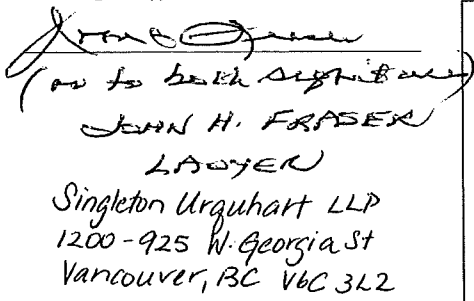 (as to both signatures)
JOHN H. FRASER
LAWYER
Singleton Urquhart LLP
1200-925 W. Georgia St
Vancouver, BC V6C 3L2